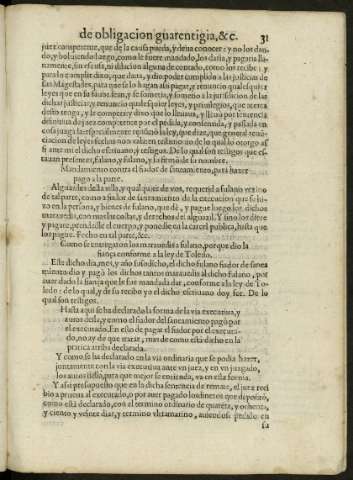 de obligacion guarentigia, &c. 31
juez competente, que de la causa pueda, y deva conocer: y no los dan-
do, y bolviendo luego, como le fuere mandado, los daria, y pagaria lla-
namente, sin escusa, ni dilacion alguna de contado, como los recibe: y
para lo cumplir dixo, que dava, y dio poder cumplido a las justicias de
Sus Magestades, para que se lo hagan assi pagar, y renuncio qualesquier
leyes que en su favor sean, y se sometia, y sometio a la jurisdicion de las
dichas justicias, y renuncio qualesquier leyes, y privilegios, que acerca
desto tenga, y le competa: y dixo que lo llevava, y llevò por sentencia
difinitiva de juez competente por el pedida, y consentida, y passada en
cosa juzgada: especialmente renunciò la ley, que dize, que general renu-
ciacion de leyes fecha non vala: en testimonio de lo qual lo otorgo assi
ante mi el dicho escrivano, y testigos. De lo qual son testigos que es-
tavan presentes, fulano, y fulano, y lo firmò de su nombre.
Mandamiento contra el fiador de saneamiento, para hazer
pago a la parte.
Alguaziles de la villa, y qualquier de vos, requerid a fulano vezino
de tal parte, como a fiador de saneamiento de la execucion que se hi-
zo en la persona, y bienes de fulano, que dè, y pague luego los dichos
maravedis, con mas las costas, y derechos del alguazil. Y sino los diere
y pagare, prendelde el cuerpo, y ponedle en la carcel publica, hasta que
los pague. Fecho en tal parte, &c.
Como se entregaron los maravedis a fulano, por que dio la
fiança conforme a la ley de Toledo.
Este dicho dia, mes, y año susodicho, el dicho fulano fiador de sanea
miento dio y pagò los dichos tantos maravedis al dicho fulano, por
aver dado la fiança que le fue mandada dar, conforme a la ley de To-
ledo: de lo qual, y de su recibo yo el dicho escrivano doy fee. De lo
qual son testigos.
Hasta aqui se ha declarado la forma de la via executiva, y
autos della, y como el fiador del saneamiento pagò por
el executado. En esto de pagar el fiador por el executa-
do, no ay de que tratar, mas de como està dicho en la
pratica arriba declarada.
Y como se ha declarado en la via ordinaria que se podia hazer,
juntamente con la via executiva ante vn juez, y en vn juzgado,
los autos della, para que mejor se entienda, va en esta forma.
Y assi presupuesto que en la dicha sentencia de remate, el juez reci
bio a prueva al executado, o por aver pagado los dineros que deposito,
como està declarado, con el termino ordinario de quarẽta, y ochenta,
y ciento y veynte dias, y termino vltramarino, aviendose pedido en
su